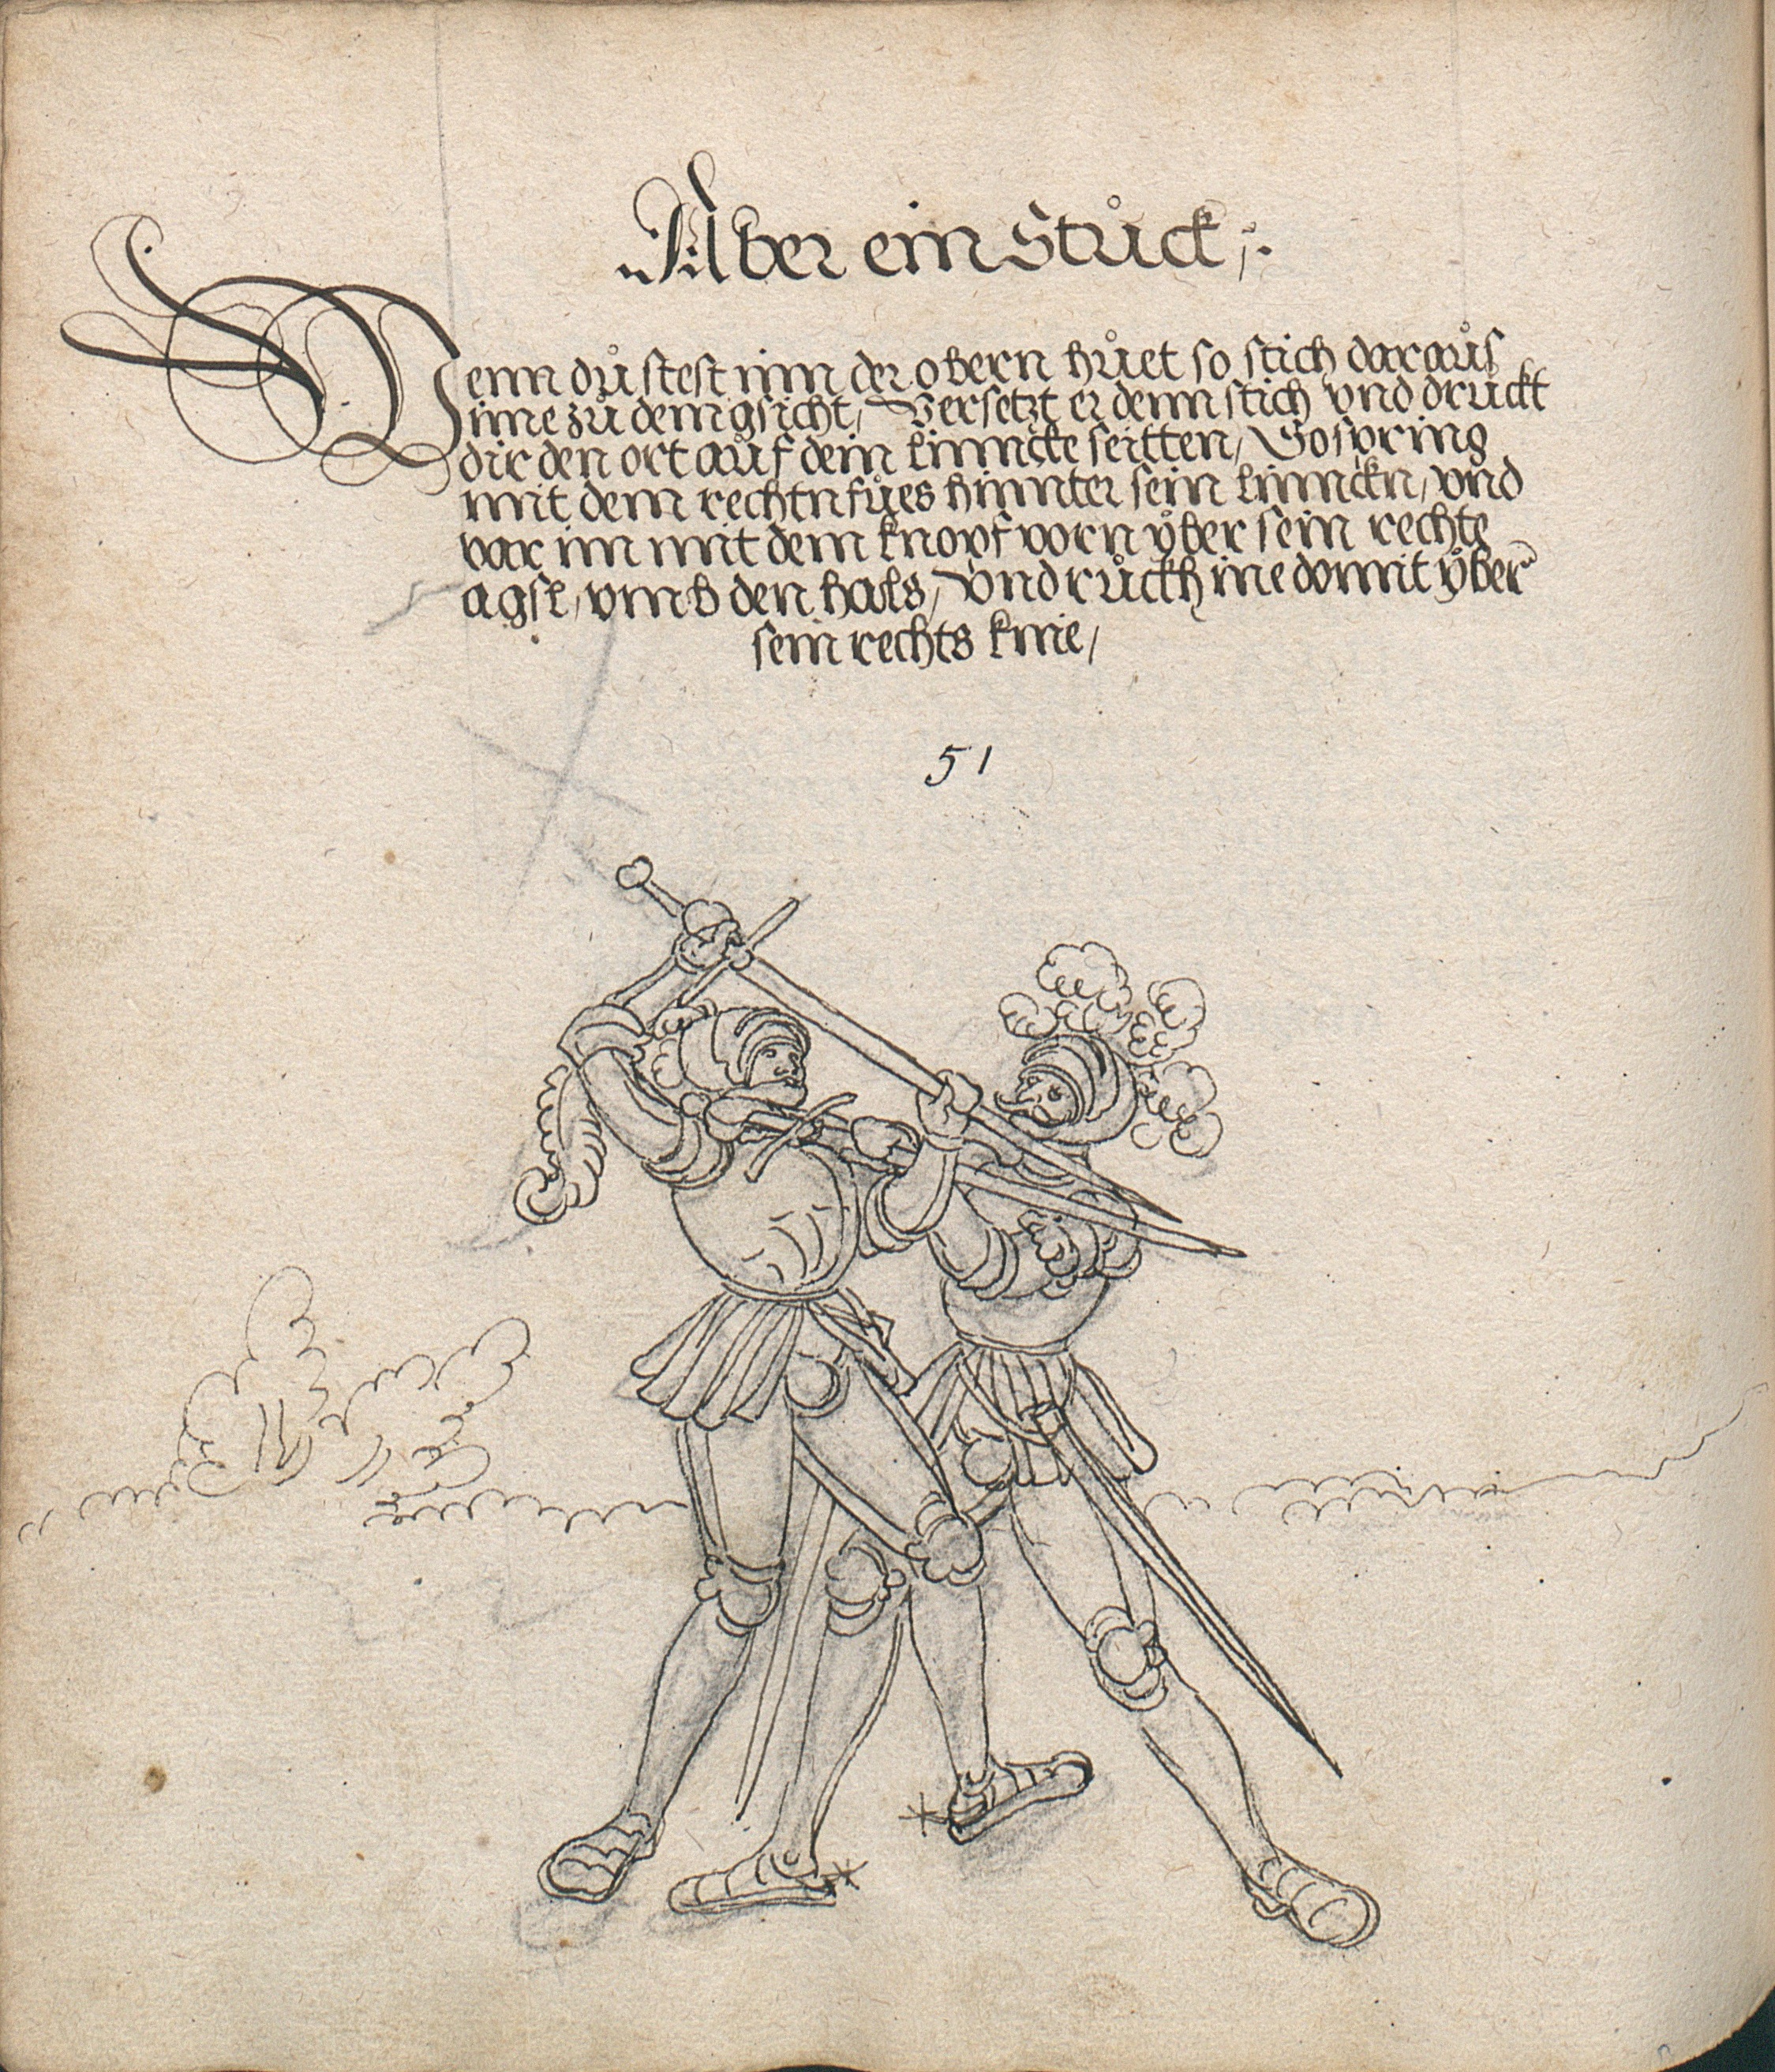 Aber ein Stůck
Wenn dů stest inn der obern hůet so stich daraůs
ime zů dem gsicht, Versetzt er denn stich vnd drůckt
dir den ort aůf dein linncke seitten, So spring
mit dem rechtn fůes hinnter sein linnckn, vnd
var im mit dem knopf vorn ÿber sein rechte
agsl, vmb den hals, Vnd růckh ine domit ÿber
sein rechts knie,
51